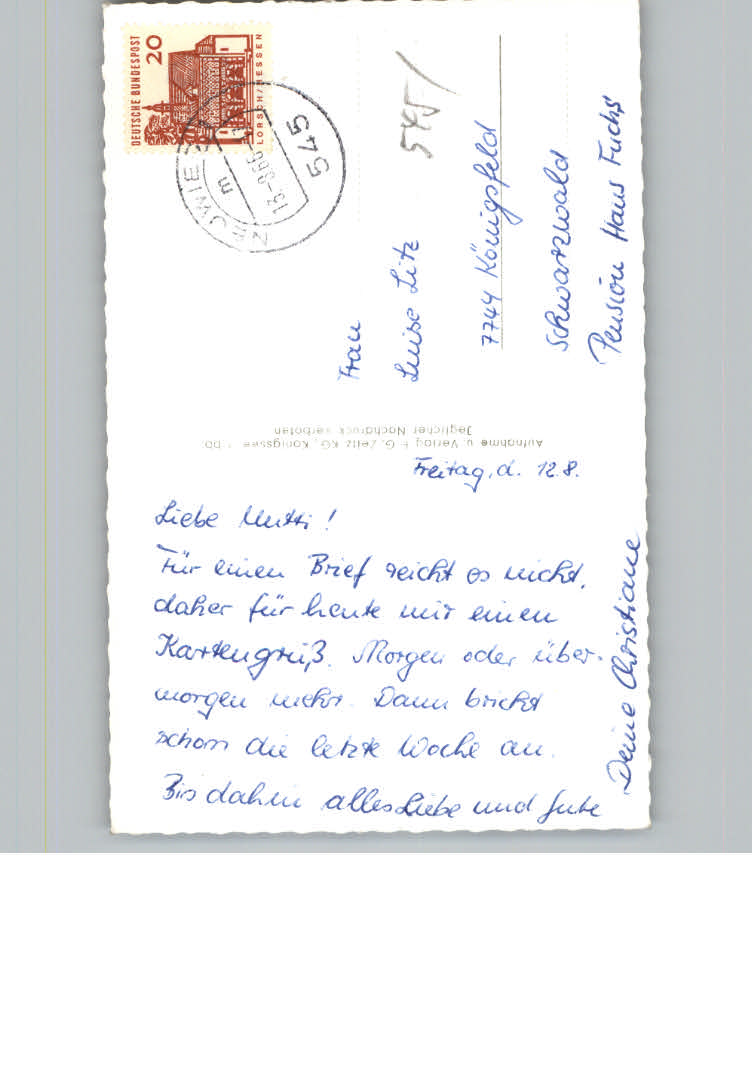 DEUTSCHE BUNDESPOST
20
LORSCH/HESSEN
545
m
545/
Frau
Luise Litz
7744 Königsfeld
Schwarzwald
Pension Haus Fuchs
Aufnahme u. Verlag G. Zeitz KG, Königssee
Jeglicher Nachdruck verboten
Freitag, d. 12.8.
Liebe Mutti!
Für einen Brief reicht es nicht,
daher für heute nur einen
Kartengruß. Morgen oder über-
morgen mehr. Dann bricht
schon die letzte Woche an.
Bis dahin alles Liebe und Gute
Deine Christiane